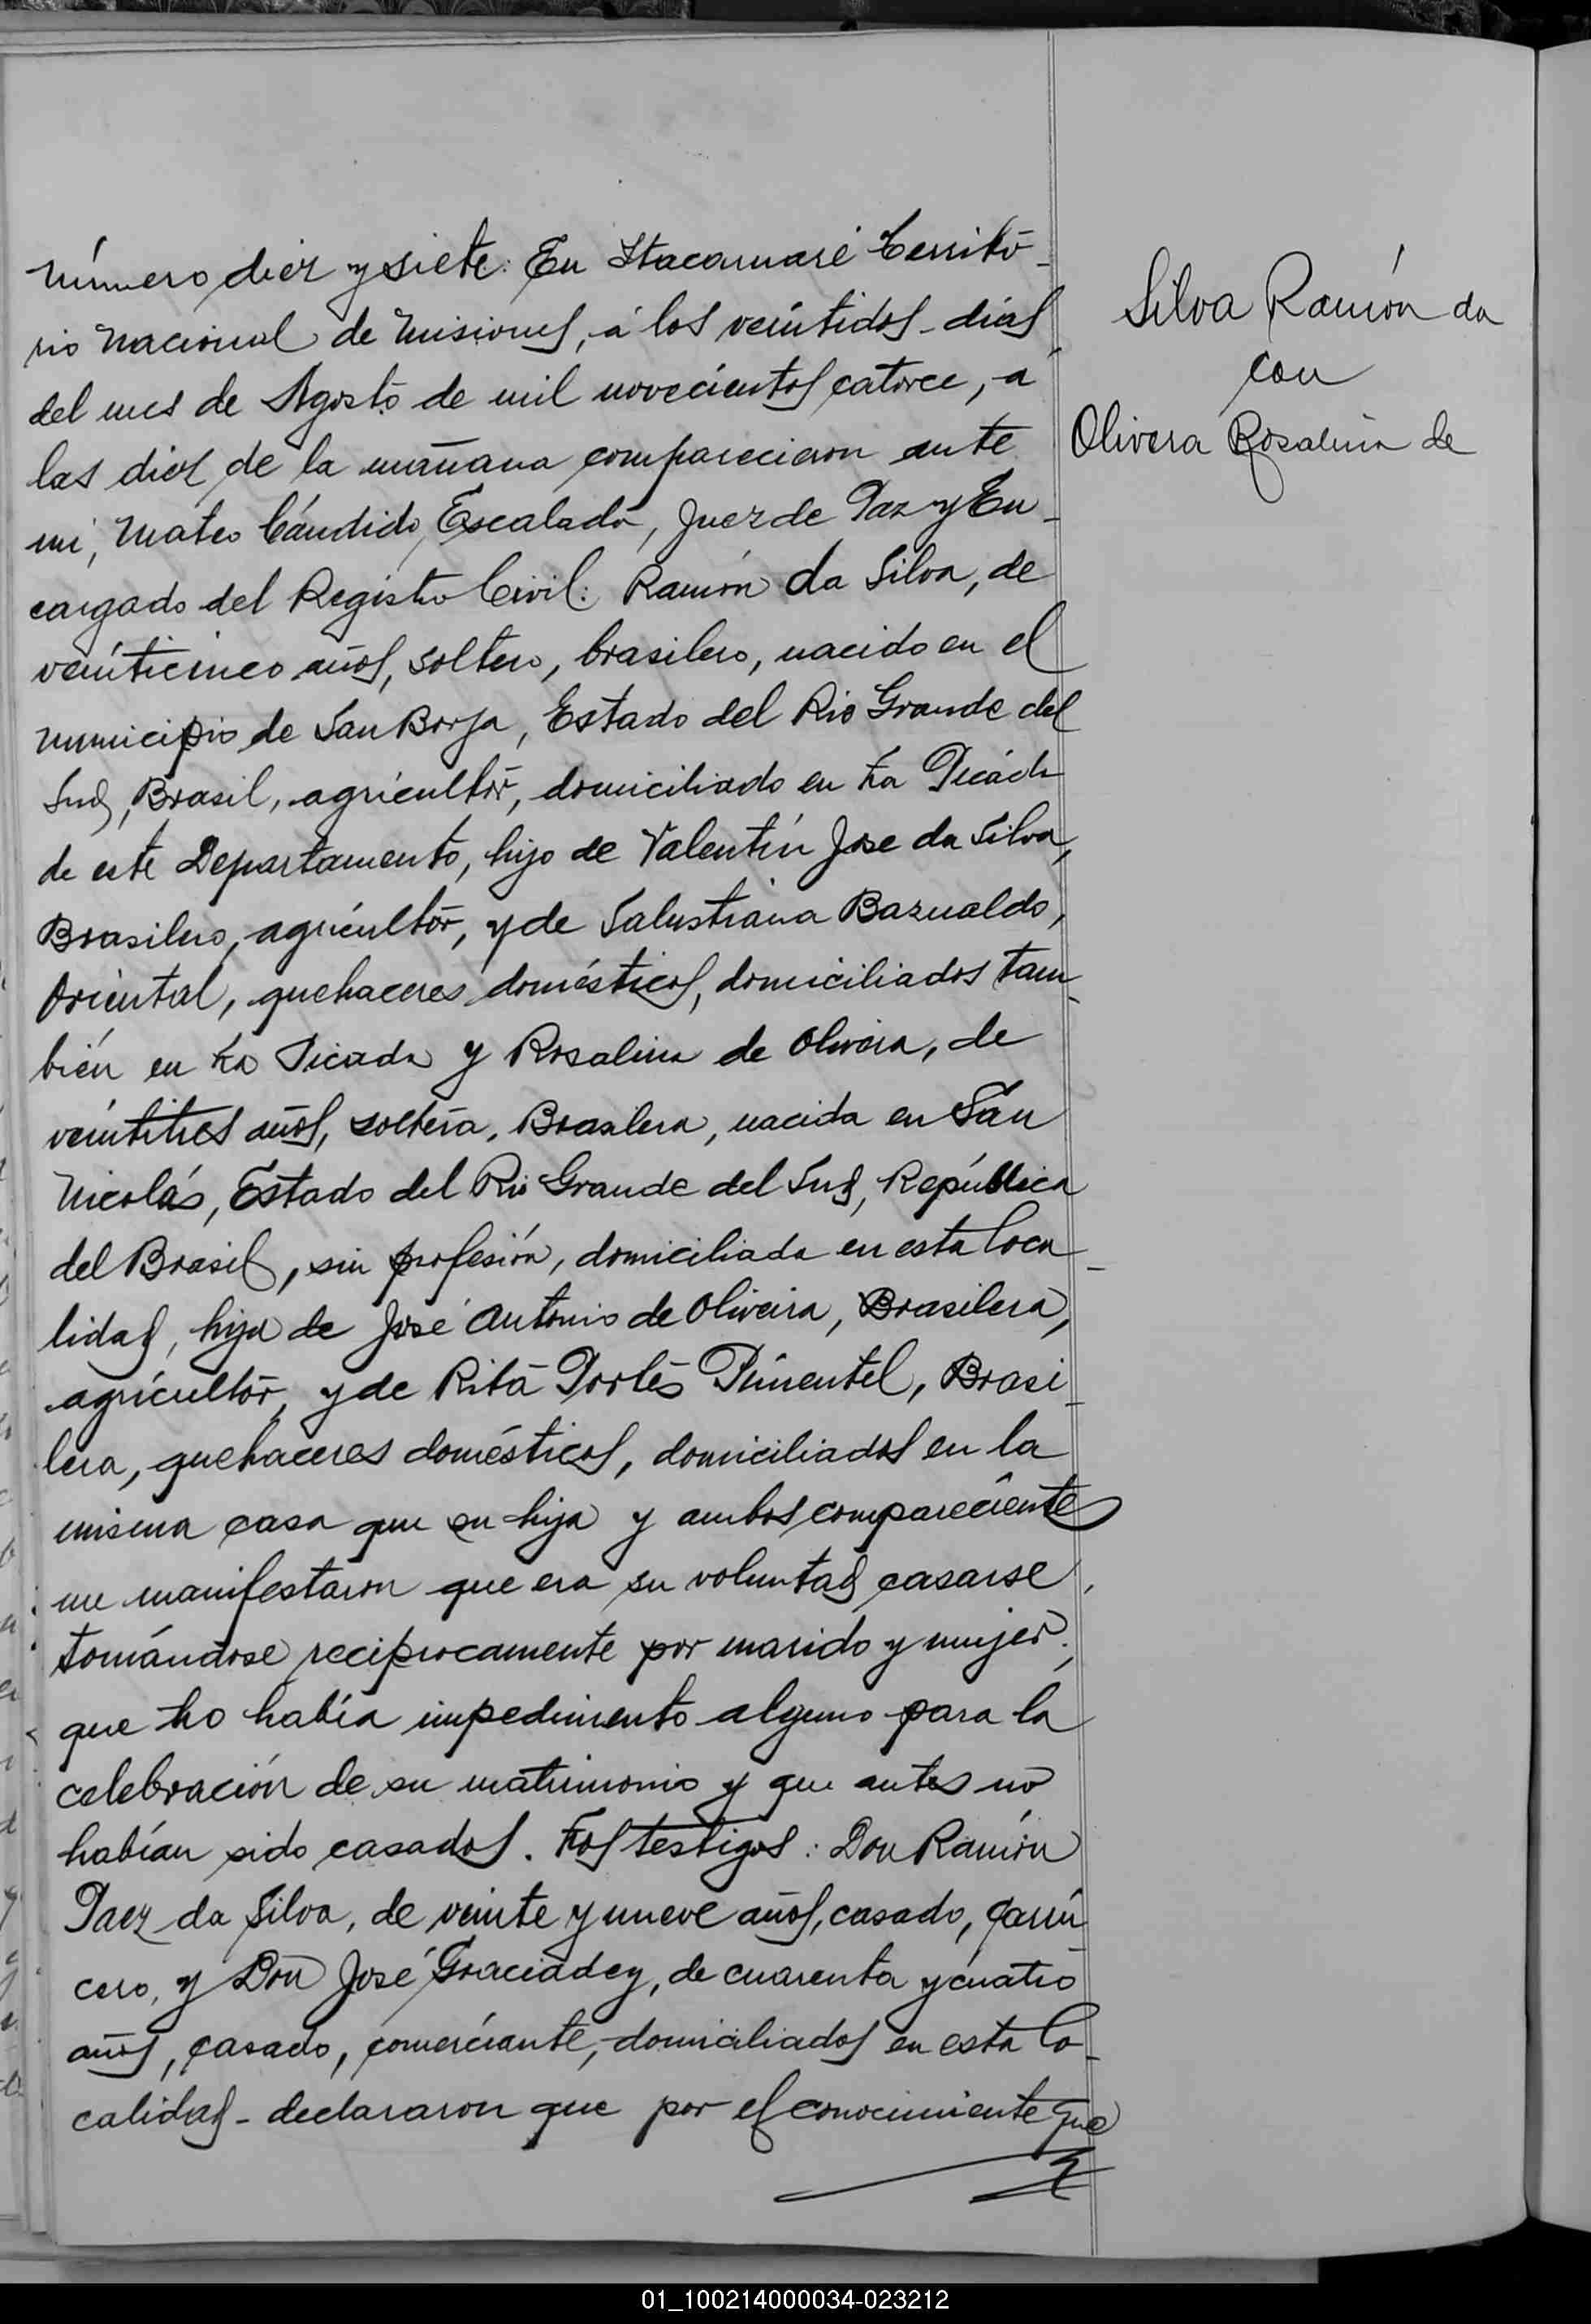 Número diez y siete: En Itacaruaré Territo-
rio Nacional de Misiones, á los veintidos dias
del mes de Agosto de mil novecientos catorce, á
las diez de la mañana comparecieron ante
mi, Mateo Cándido Escalada, Juez de Paz y En-
cargado del Registro Civil: Ramón da Silva, de
veinticinco años, soltero, brasilero, nacido en el
municipio de San Borja, Estado del Rio Grande del
Sud, Brasil, agricultor, domiciliado en La Picada
de este Departamento, hijo de Valentín Jose da Silva,
Brasilero, agricultor, y de Salustiana Bazualdo,
Oriental, quehaceres domésticos, domiciliados tam-
bién en La Picada y Rosalina de Oliveira, de
veintitres años, soltera, Brasilera, nacida en San
Nicolás, Estado del Rio Grande del Sud, República
del Brasil, sin profesión, domiciliada en esta loca-
lidad, hija de José Antonio de Oliveira, Brasilera,
agricultor, y de Rita Portes Pimentel, Brasi-
lera, quehaceres domésticos, domiciliados en la
misma casa que su hija y ambos compareciente
me manifestaron que era su voluntad casarse,
tomándose reciprocamente por marido y mujer;
que no había impedimento alguno para la
celebración de su matrimonio y que antes no
habían sido casados. Los testigos: Don Ramón
Paez da Silva, de veinte y nueve años, casado, carni
cero, y Don José Graciadey, de cuarenta y cuatro
años, casado, comerciante, domiciliados en esta lo-
calidad - declararon que por el conocimiente que
Silva Ramón da
con
Olivera Rosalina de
01_100214000034-023212